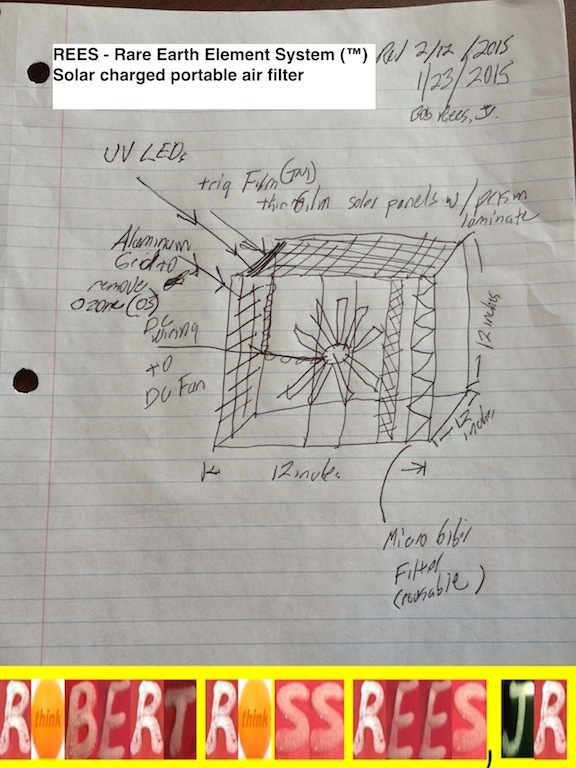 REES - Rare Earth Element System (™)
Solar charged portable air filter
Rev 2/12/2015
1/23/2015
Bob Rees, Jr.
UV LEDs
triq Film
thin film solar panels w/ prism
laminate
Aluminum
Grid to
remove
ozone (O3)
DC
wiring
to
DC Fan
12 inches
12
inches
12 inches
Micro
Filter
(reusable)
ROBERT ROSS REES, JR
think
think